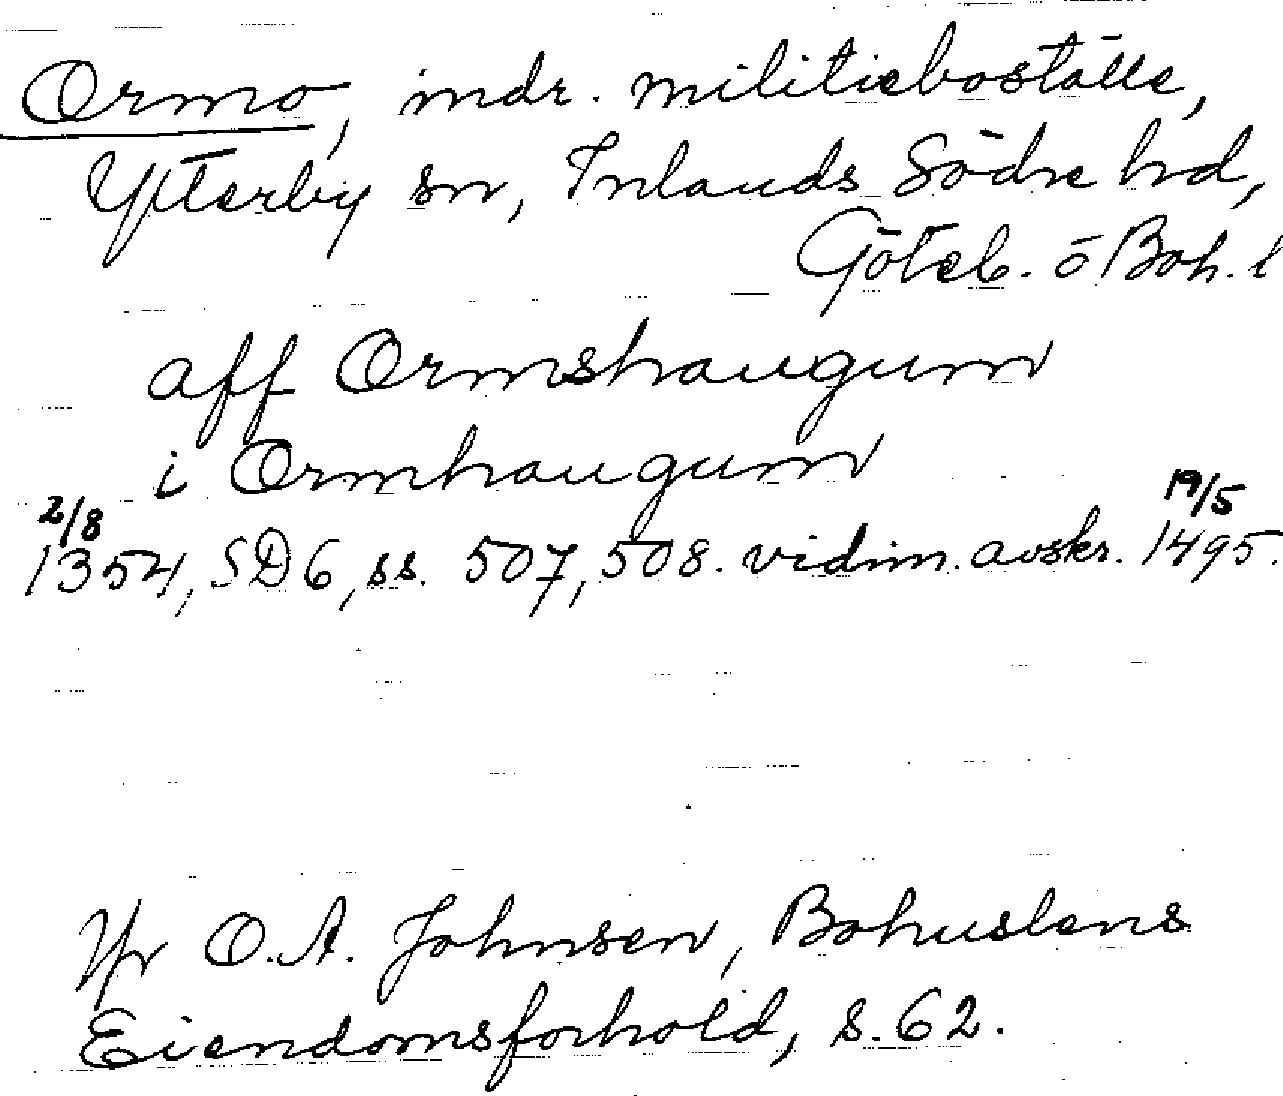 Ormo, indr. militieboställe,
Ytterby sn, Inlands Södre hd,
Göteb. o Boh. l
aff Ormshaugum
i Ormhaugum
2/8 19/5
1354, SD6, ss. 507, 508. vidim. avskr. 1495.
Jfr O.A. Johnsen, Bohuslens
Eiendomsforhold, s. 62.